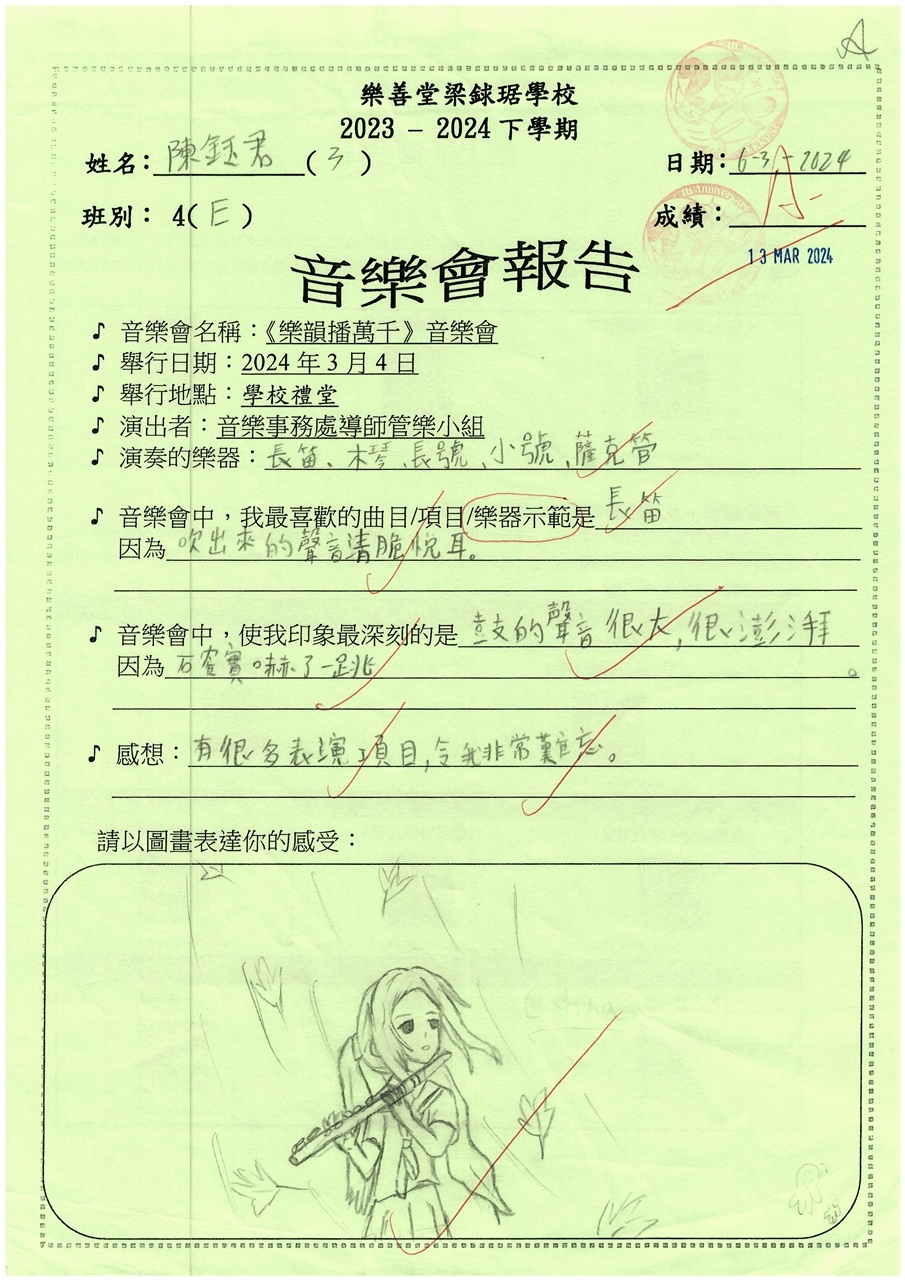 A
樂善堂梁銶琚學校
2023 – 2024 下學期
姓名：陳鈺君 ( 3 ) 日期：6-3-2024
班別： 4( E ) 成績： A-
13 MAR 2024
音樂會報告
♪ 音樂會名稱：《樂韻播萬千》音樂會
♪ 舉行日期：2024 年 3 月 4 日
♪ 舉行地點：學校禮堂
♪ 演出者：音樂事務處導師管樂小組
♪ 演奏的樂器：長笛、木琴、長號、小號、薩克管
♪ 音樂會中，我最喜歡的曲目/項目/樂器示範是 長笛
因為 吹出來的聲音清脆悅耳。
♪ 音樂會中，使我印象最深刻的是 鼓的聲音很大，很澎湃
因為 嚇了一跳。
♪ 感想：有很多表演項目，令我非常難忘。
請以圖畫表達你的感受：